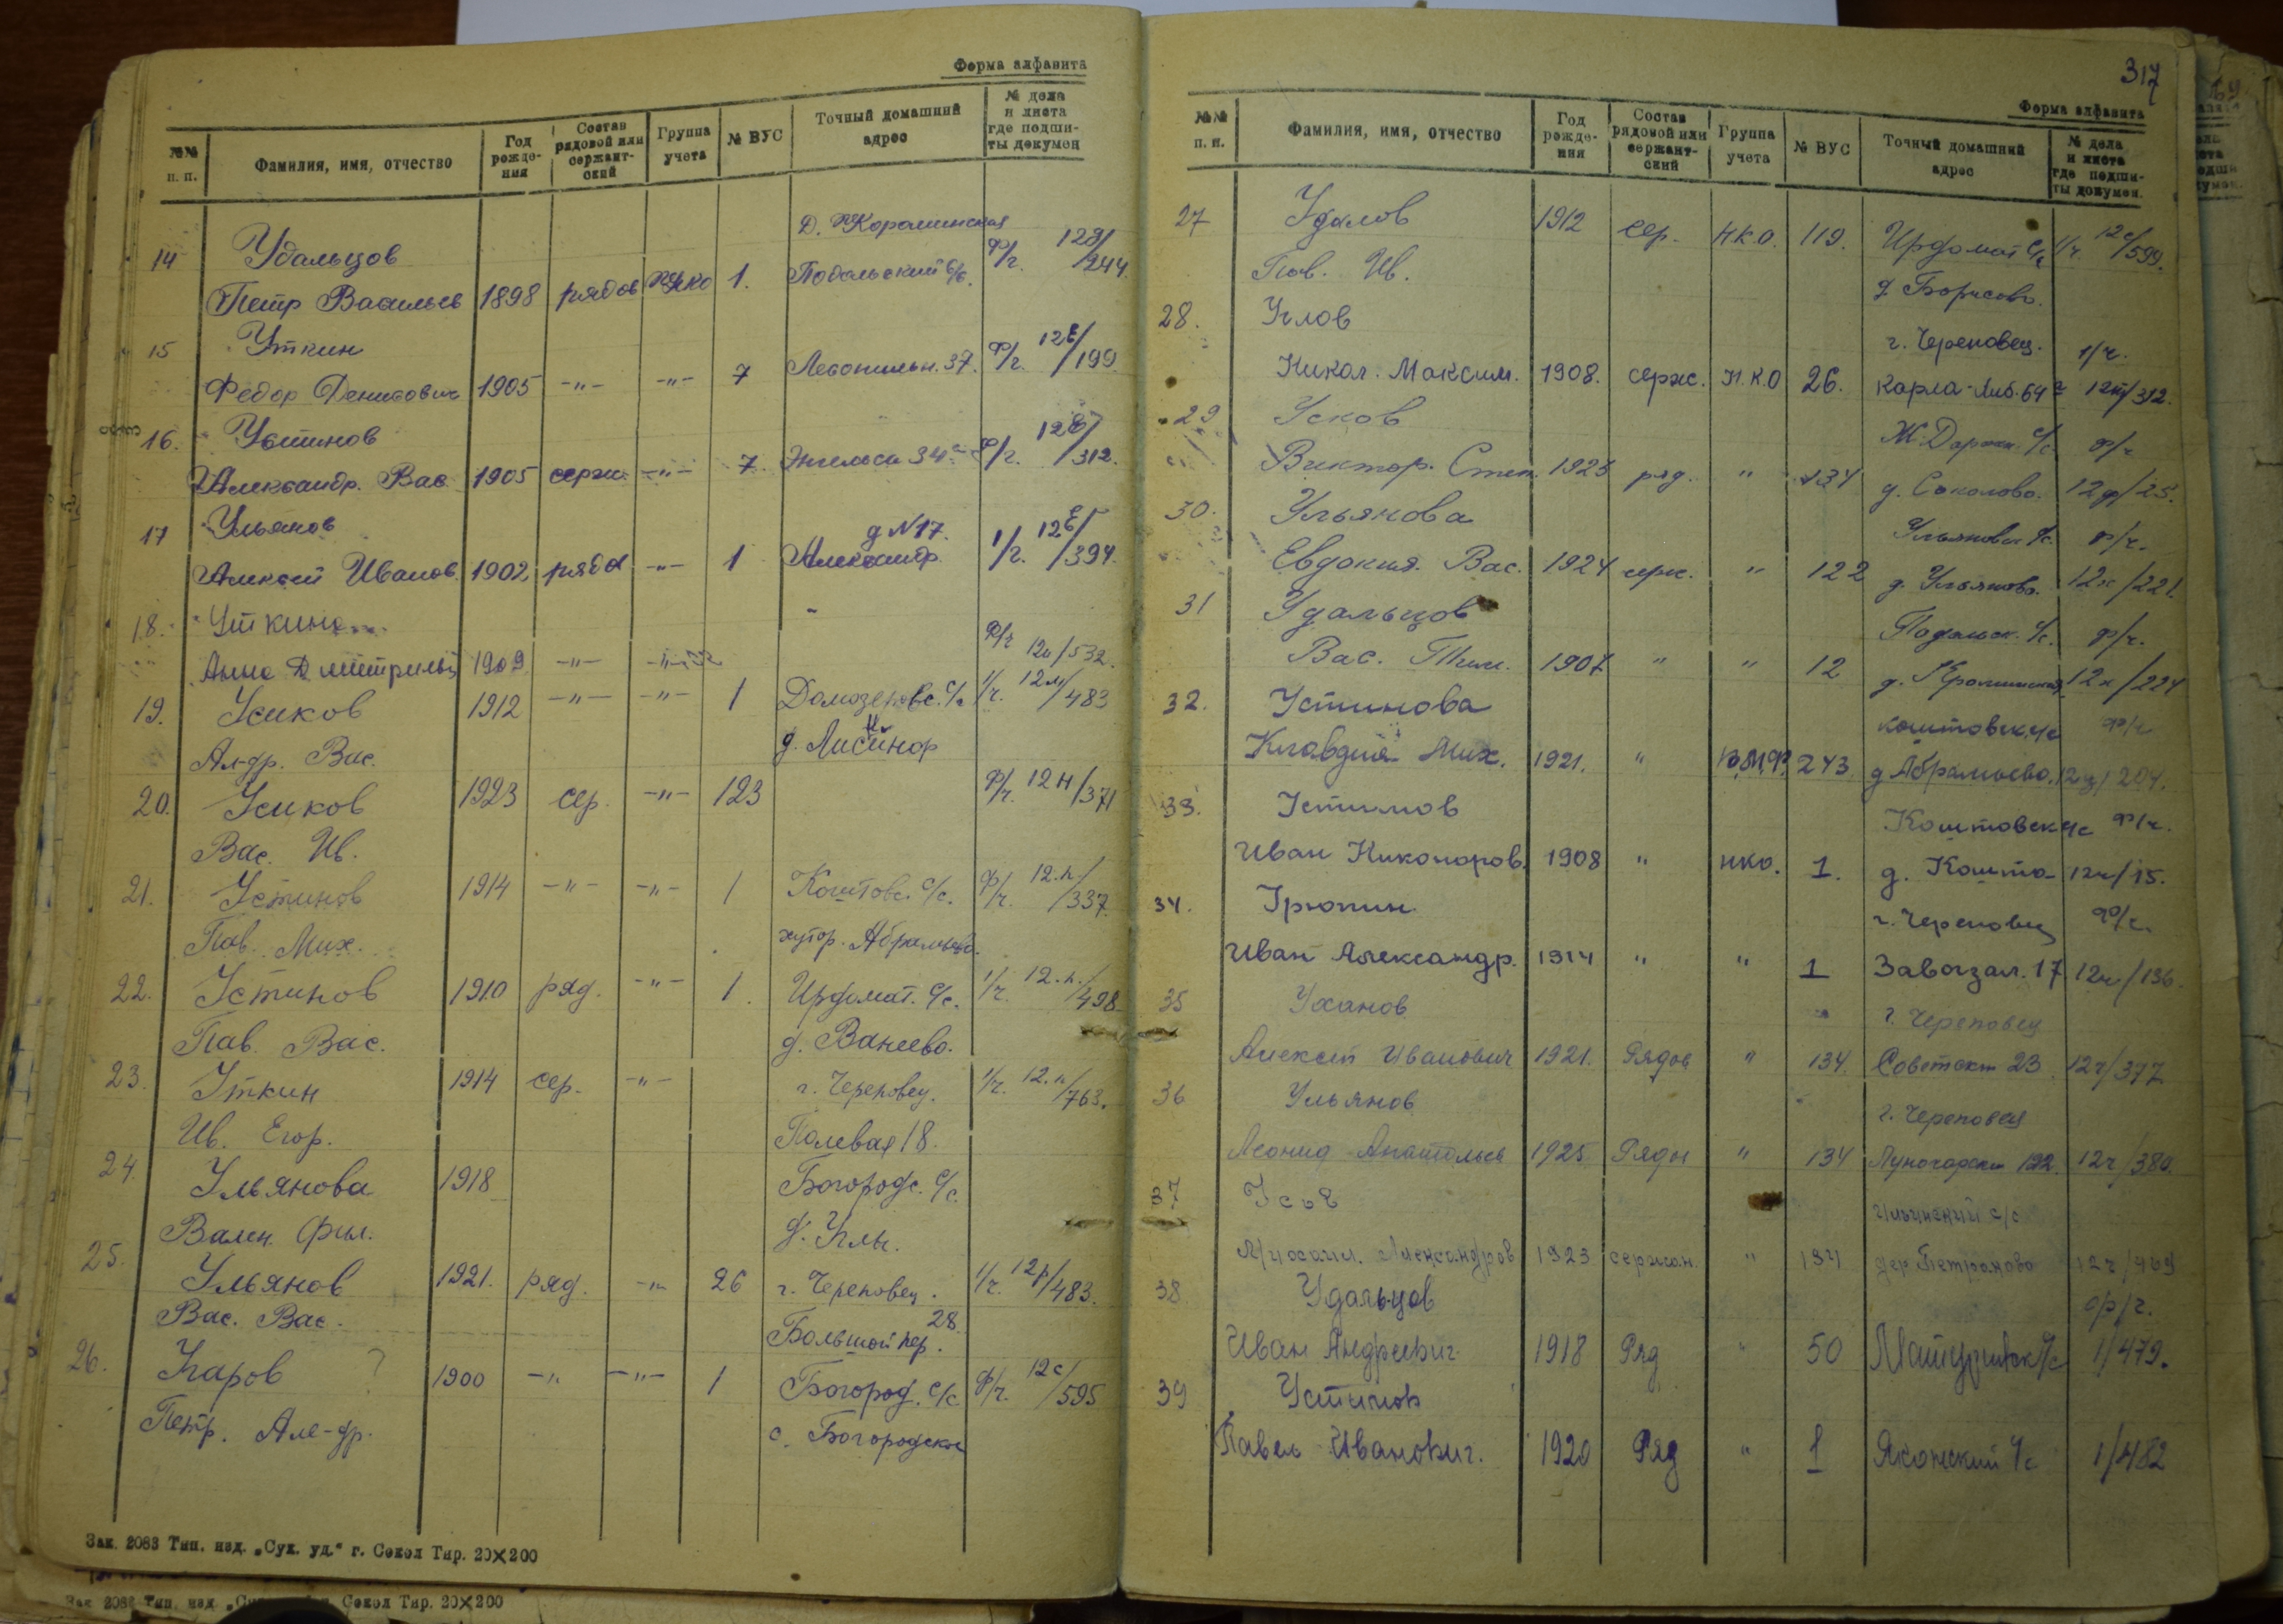 Форма алфавита
№№ п. п. Фамилия, имя, отчество Год рождения Состав рядовой или сержантский Группа учета № ВУС Точный домашний адрес № дела и листа где подшиты докумен
14 Удальцов Д.
Петр Васильев 1898 рядов НКО 1. Подольский с/с. ф/г. /244
15 Уткин
Федор Денисович 1905 -"- -"- 7 37. ф/г. 12Е/199
16. Устинов
Александр. Вас. 1905 серж. -"- 7. Энгельса 34 ф/г. /312.
17 Ульянов д N17.
Алексей Иванов. 1902 рядов -"- 1 Александр. 1/г. 12Е/394.
18. Уткина
Анна Дмитриевн 1909 -"- -"- ф/г 12и/532.
19. Усиков 1912 -"- -"- 1 Домозеровс. с/с 1/г. 12м/483
Ал-др. Вас. д.
20. Усиков 1923 сер. -"- 123 ф/г. 12н/371
Вас. Ив.
21. Устинов 1914 -"- -"- 1 Коштовс. с/с. ф/г. 12.п/337.
Пав. Мих. хутор. Абрамьево.
22. Устинов 1910 ряд. -"- 1. Ирдомат. с/с. 1/г. 12.п./498
Пав. Вас. д. Ванеево.
23. Уткин 1914 сер. -"- г. Череповец. 1/г. 12.п/763.
Ив. Егор. Полевая 18.
24. Ульянова 1918 Богородс. с/с.
Вален. Фил. д. Углы.
25. Ульянов 1921. ряд. -"- 26 г. Череповец. 1/г. 12р/483.
Вас. Вас. Большой пер. 28.
26. Угаров ? 1900 -"- -"- 1 Богород. с/с ф/г. 12с/595
Петр. Але-др. с. Богородское
Зак. 2083 Тип. изд. „Сух. уд." г. Сокол Тир. 20×200
Зак 2083 Тип. изд Сокол Тир. 20×200
317
Форма алфавита
№№ п. п. Фамилия, имя, отчество Год рождения Состав рядовой или сержантский Группа учета № ВУС Точный домашний адрес № дела и листа где подшиты докумен.
27 Удалов 1912 сер. Н.К.О. 119. Ирдомат с/с 1/г. 12с/599.
Пав. Ив. д. Борисово.
28. Углов г. Череповец. 1/г.
Никол. Максим. 1908. серж. Н.К.О 26. Карла-Либ. 64 /312.
29 Усков с/с ф/г
Виктор. Степ. 1925 ряд. " 134 д. Соколово. 12ф/25.
30. Ульянова Ульяновск с/с. ф/г.
Евдокия. Вас. 1924 серж. " 122 д. Ульяново. 12х/221.
31 Удальцов Подольск. с/с. ф/г.
Вас. Тим. 1907 " " 12 д. 12х/224
32. Устинова Коштовск с/с ф/г
Клавдия Мих. 1921. " В.М.Ф. 243 д Абрамьево. 12ц/204.
33. Устинов Коштовск с/с ф/г.
Иван Никоноров. 1908 " нко. 1. д. Кошта 12ч/15.
34. Урюпин г. Череповец ф/г.
Иван Александр. 1914 " " 1 Завокзал. 17 12ч/136.
35 Уханов г. Череповец
Алексей Иванович 1921. Рядов " 134. Советская 23 12ч/377
36 Ульянов г. Череповец
Леонид Анатольев 1925 Рядов " 134 Луначарски 122. 12ч/380.
37 Ильинский с/с
Михаил. Александров 1923 сержан. " 134 дер Петраково
38 Удальцов ф/г.
Иван Андреевич 1918 Ряд " 50 1/479.
39 Устинов
Павел Иванович. 1920 Ряд " 1 Яконский с/с 1/482